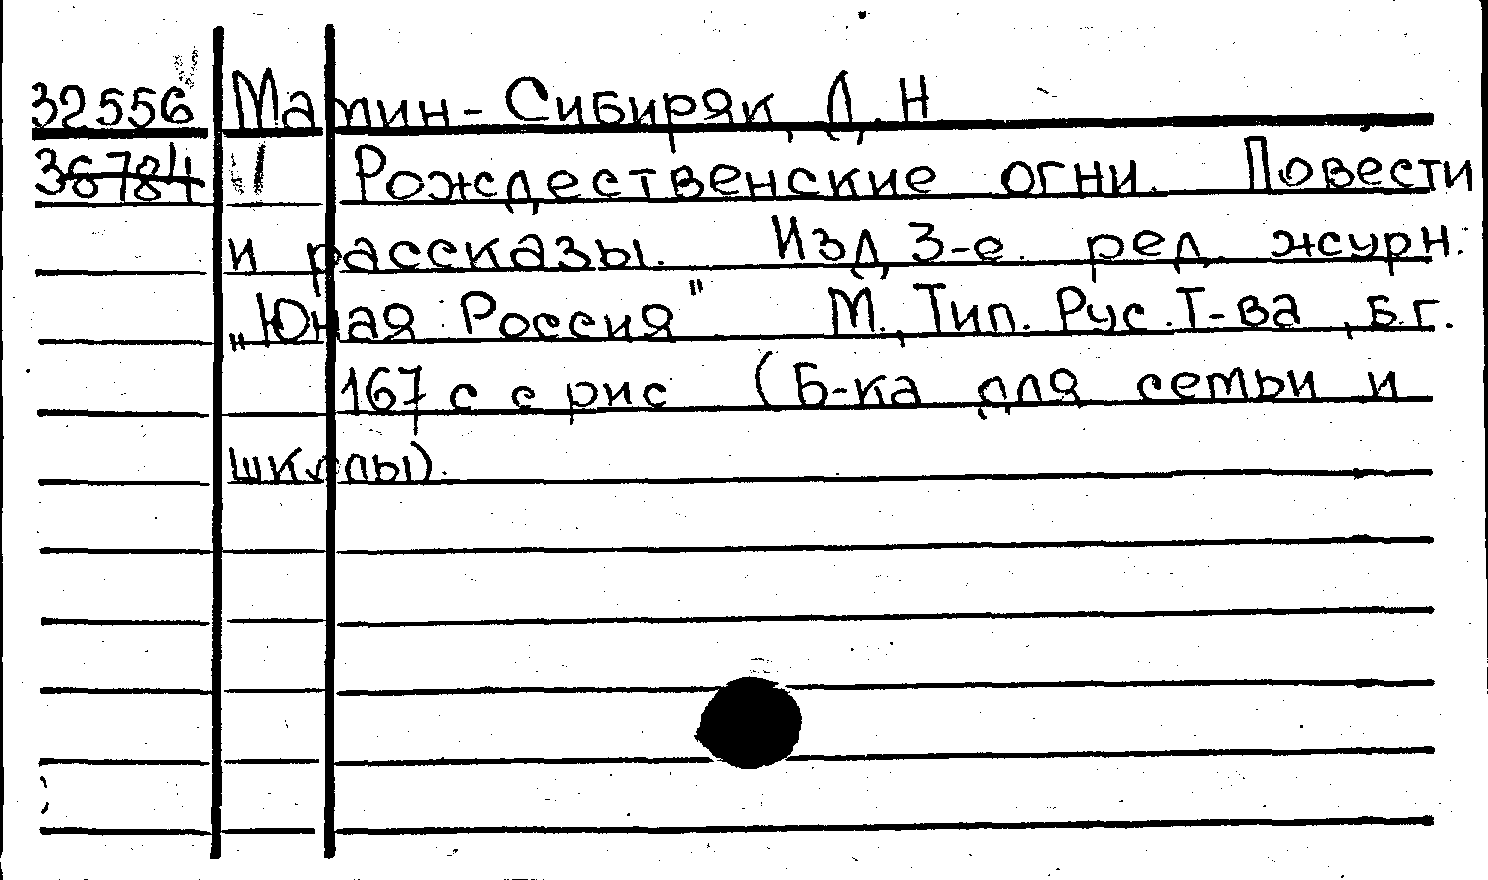 32556 Мамин-Сибиряк, Д. Н
36784 Рождественские огни. Повести
и рассказы. Изд. 3-е. ред. журн.
„Юная Россия" М., Тип. Рус. Т-ва, б.г.
167 с с рис (Б-ка для семьи и
школы).